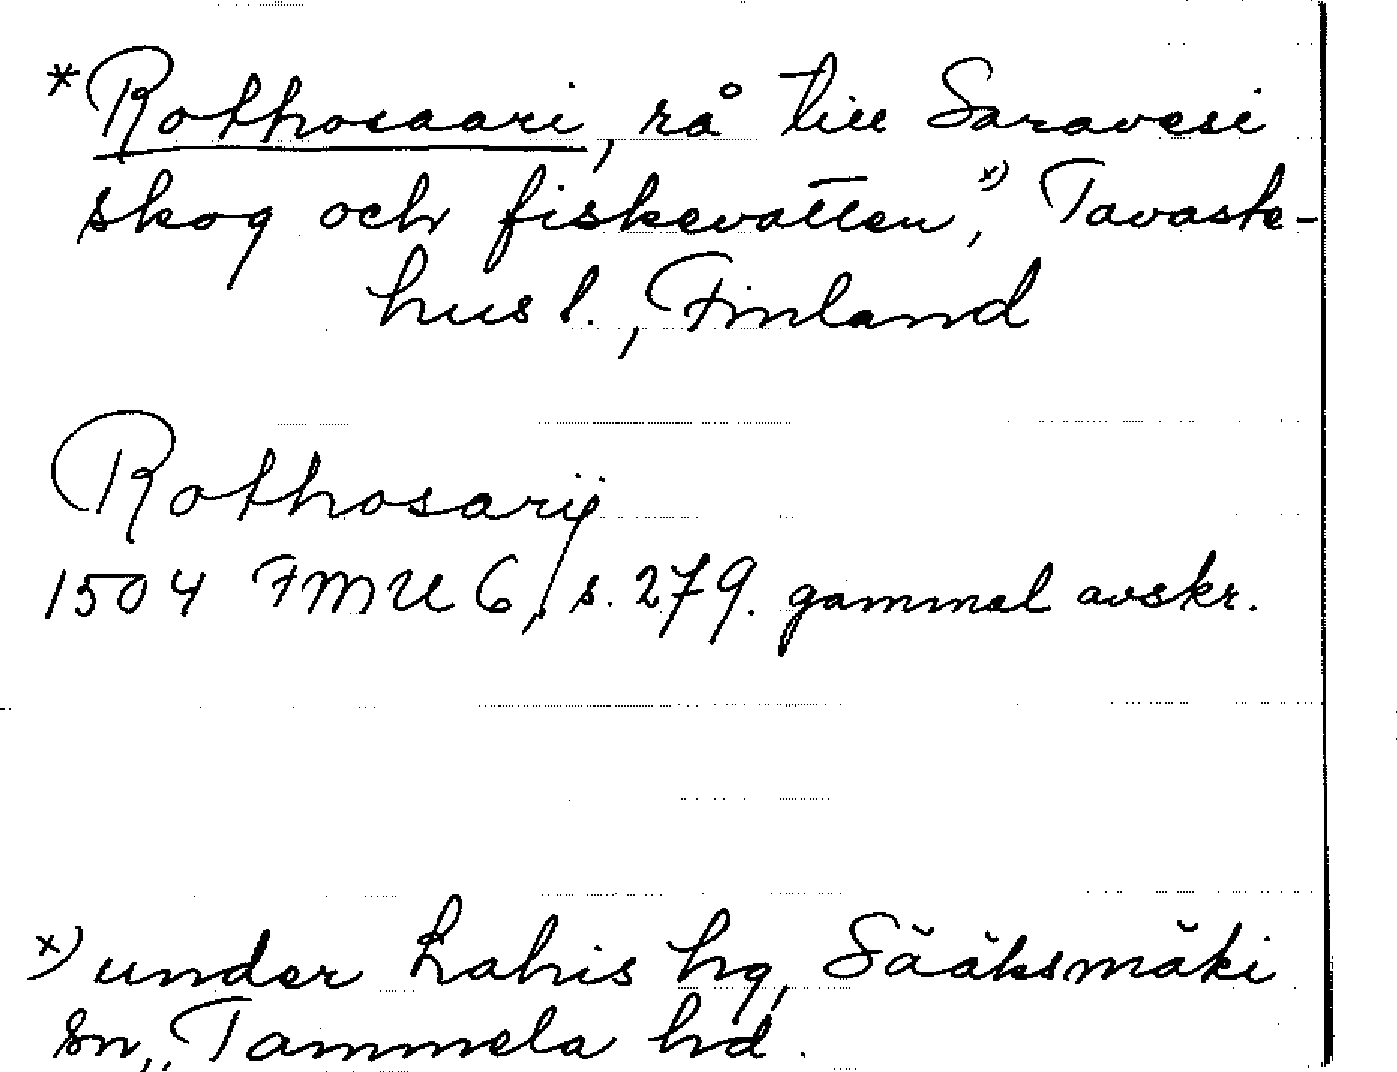 *Rothosaari, rå till Saravesi
skog och fiskevatten,ˣ⁾ Tavaste-
hus l., Finland
Rothosarÿ
1504 FMU 6, s. 279. gammal avskr.
x) under Lahis hg, Sääksmäki
sn, Tammela hd.